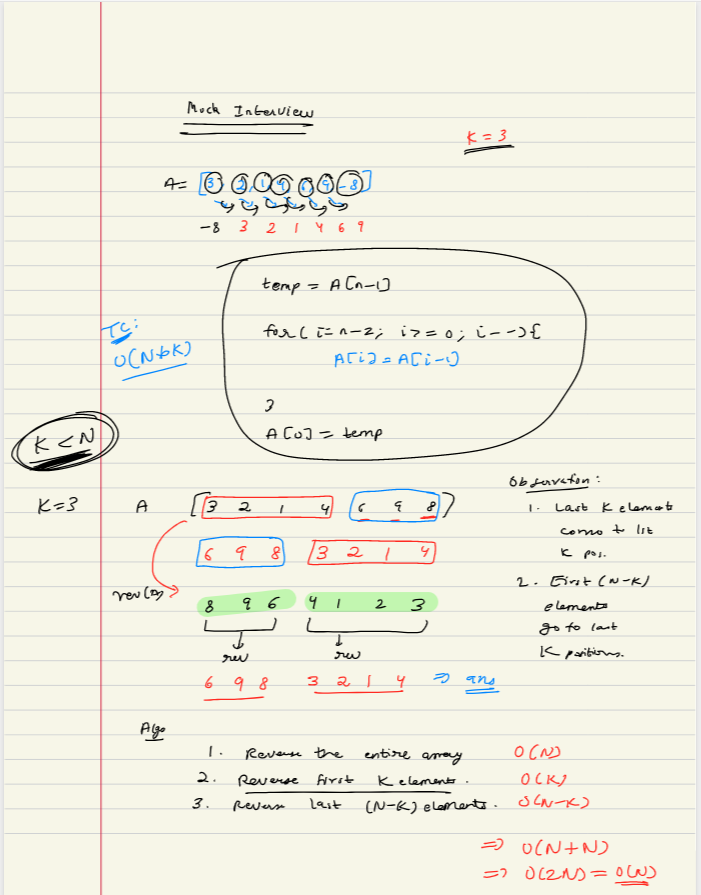 Mock Interview
K = 3
A = [3, 2, 1, 4, 6, 9, -8]
-8 3 2 1 4 6 9
temp = A[n-1]
for( i= n-2; i>= 0; i--){
A[i] = A[i-1]
}
A[0] = temp
TC:
O(N*K)
K < N
K=3 A [3 2 1 4 6 9 8]
6 9 8 3 2 1 4
rev(A)
8 9 6 4 1 2 3
rev rev
6 9 8 3 2 1 4 => ans
Observation :
1. Last K elements
come to 1st
K pos.
2. First (N-K)
elements
go to last
K positions.
Algo
1. Reverse the entire array O(N)
2. Reverse first K elements. O(K)
3. Reverse last (N-K) elements. O(N-K)
=> O(N+N)
=> O(2N) = O(N)